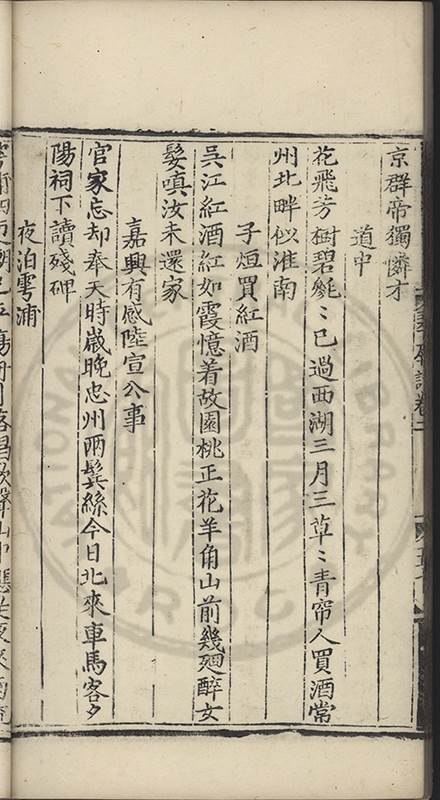 京群帝獨憐才
道中
花飛芳樹碧毿〻已過西湖三月三草〻青帘人買酒常
州北畔似淮南
子烜買紅酒
吳江紅酒紅如霞憶着故園桃正花羊角山前幾廻醉女
嬃嗔汝未還家
嘉興有感陸宣公事
官家忘却奉天時歲晚忠州兩鬢絲今日北來車馬客夕
陽祠下讀殘碑
夜泊雩浦